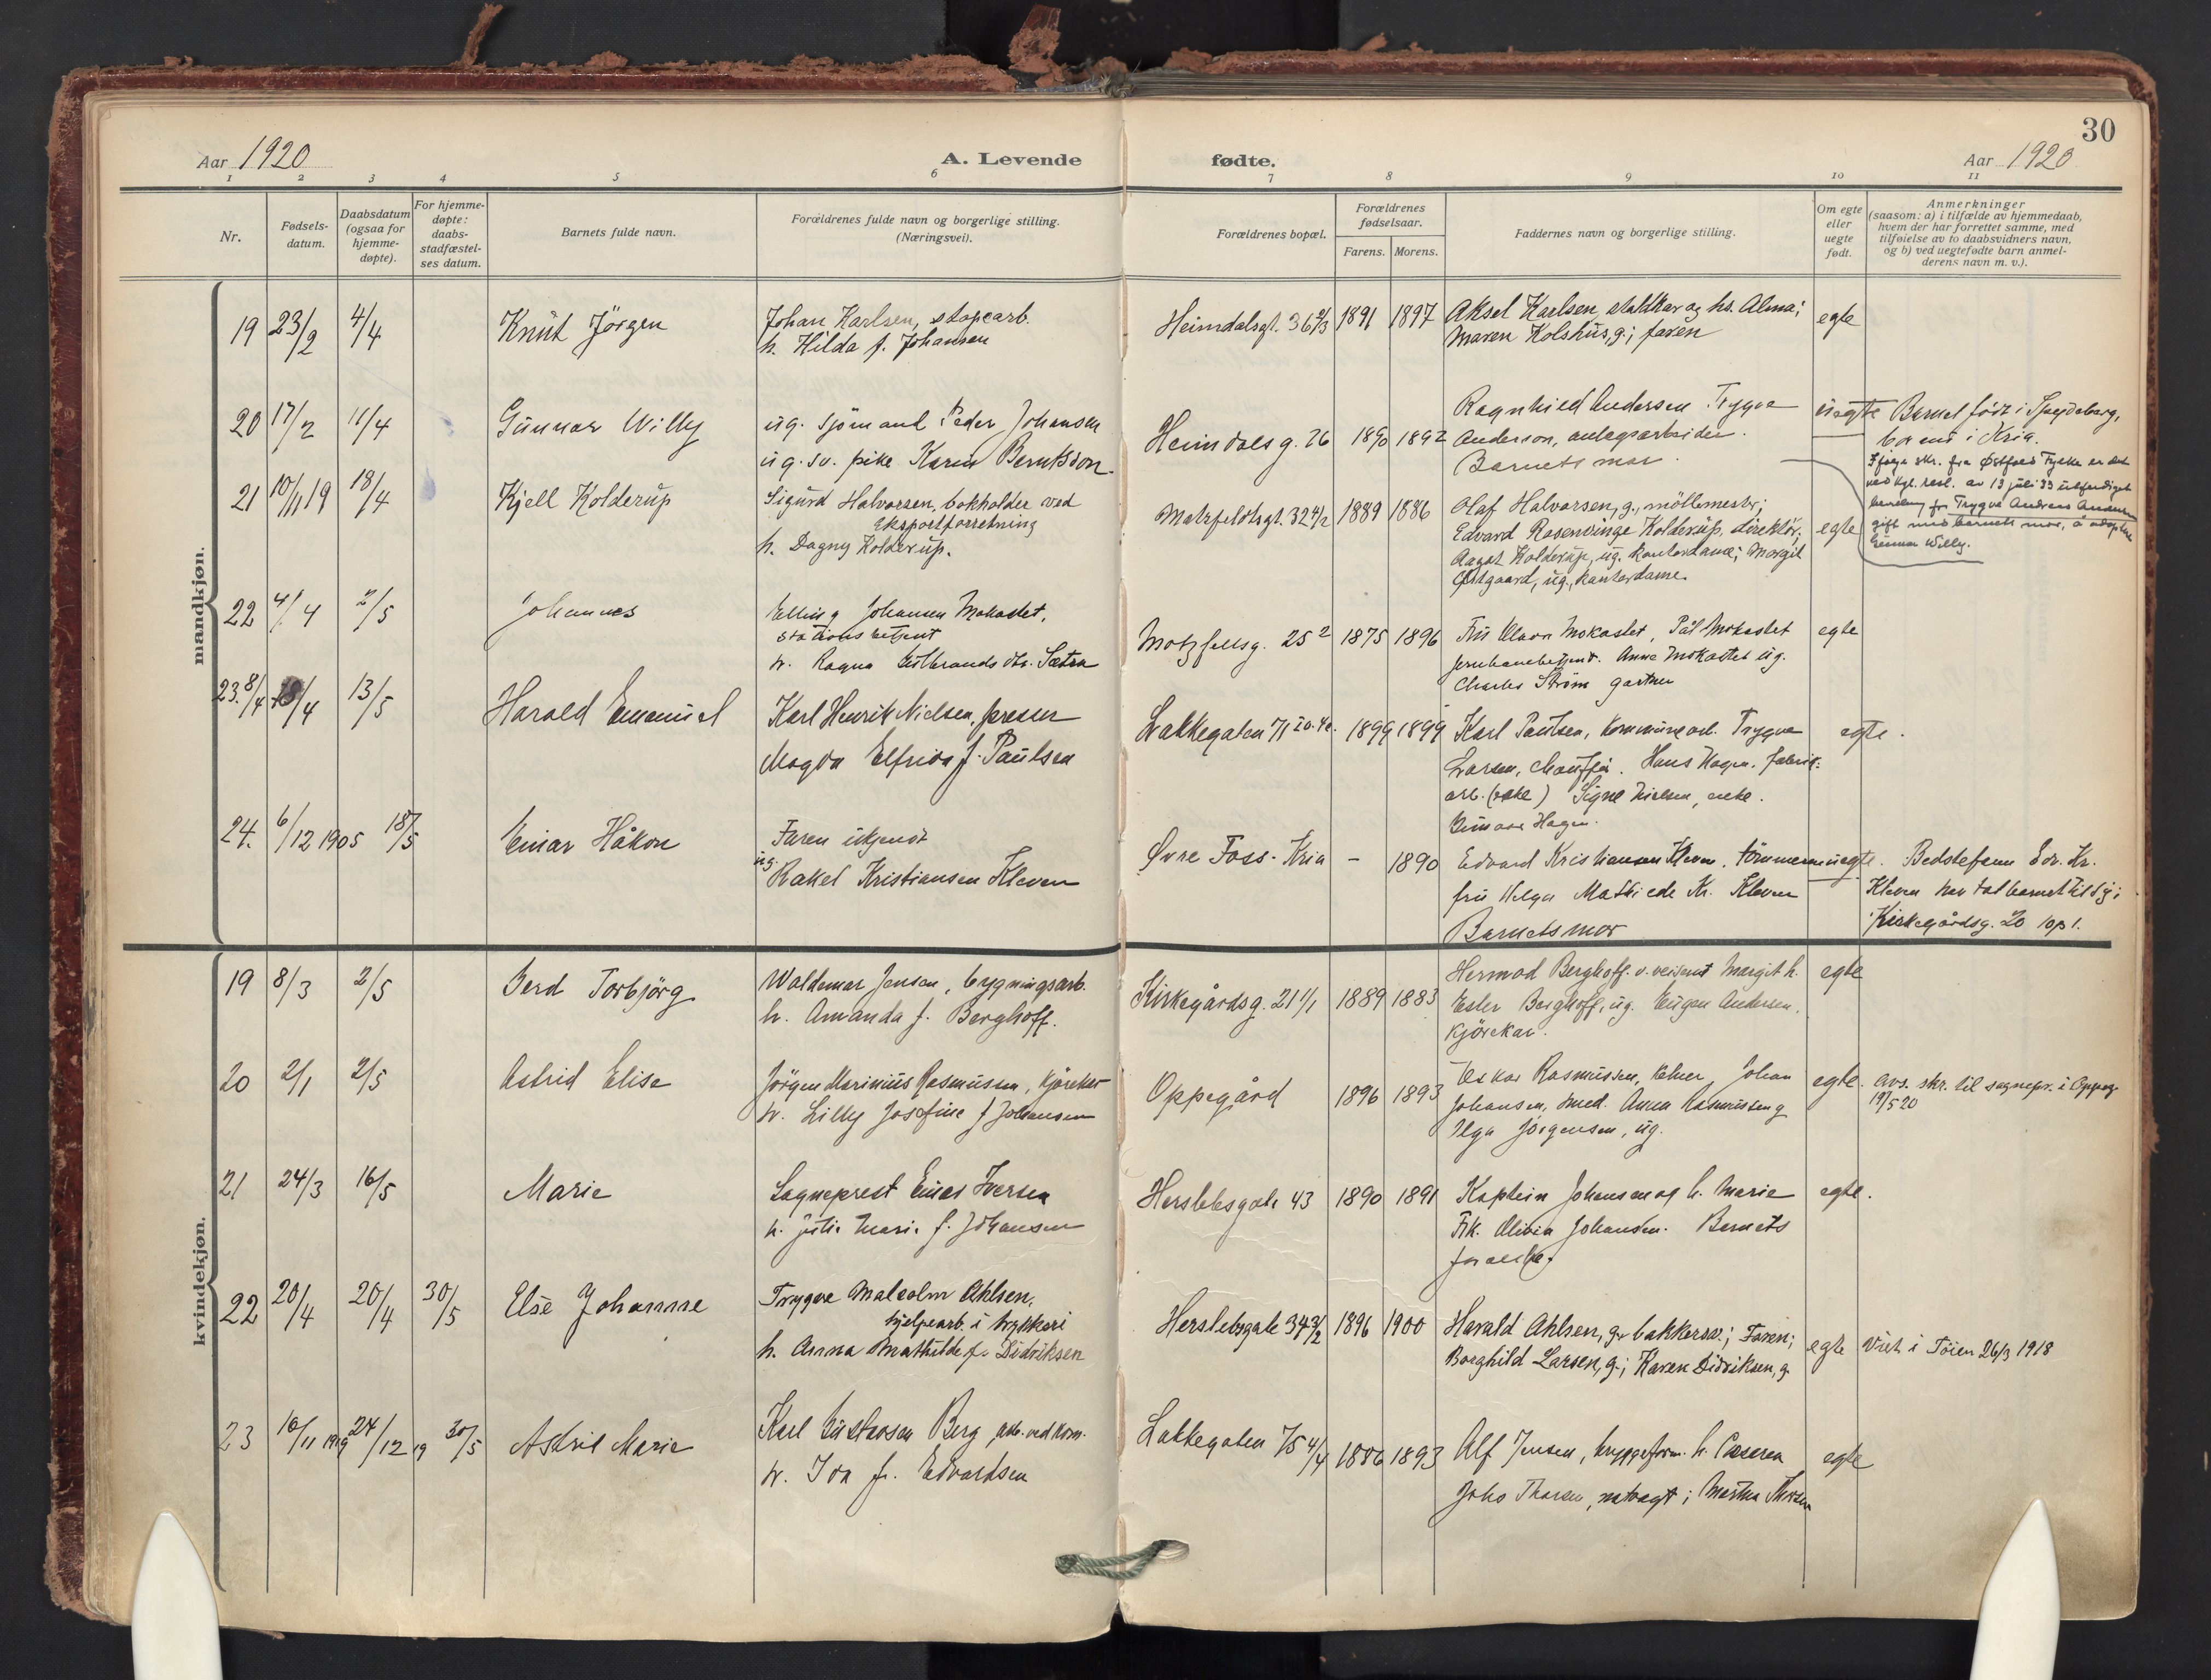 30
Aar 1920
A. Levende
fødte.
Aar 1920
1 2 3 4 5 6 7 8 9 10 11
Nr.
Fødsels-
datum.
Daabsdatum
(ogsaa for
hjemme-
døpte).
For hjemme-
døpte:
daabs-
stadfæstel-
ses datum.
Barnets fulde navn.
Forældrenes fulde navn og borgerlige stilling.
(Næringsvei).
Forældrenes bopæl.
Forældrenes
fødselsaar.
Farens. Morens.
Faddernes navn og borgerlige stilling.
Om egte
eller
uegte
født.
Anmerkninger
(saasom: a) i tilfælde av hjemmedaab,
hvem der har forrettet samme, med
tilføielse av to daabsvidners navn,
og b) ved uegtefødte barn anmel-
derens navn m. v.).
mandkjøn.
19 23/2 4/4 Knut Jörgen
Johan Karlsen, stopearb.
h. Hilda f. Johansen
Heimdalsgt. 36 2/3 1891 1897
Aksel Karlsen, staldkar og hs. Alma;
Maren Kolshus, g.; faren
egte
20 17/2 11/4 Gunnar Willy
ug. sjömand Peder Johansen
ug. sv. pike Karen Berntsdon.
Heimdalsg. 26 1890 1892
Ragnhild Andersen Trygve
Anderson, anlegsarbeider.
Barnets mor.
uegte
Barnet födt i Spydeberg,
boende i Kria.
Ifølge skr. fra Østfold Fylke er det
ved kgl. resl. av 13 juli 33 utferdiget
bevilling for Trygve Andreas Andersen
gift med barnets mor, å adoptere
Gunnar Willy.
21 10/11 19 18/4 Kjell Kolderup
Sigurd Halvorsen, bokholder ved
Eksportforretning
h. Dagny Kolderup.
Motzfeldtsgt. 32 4/2 1889 1886
Olaf Halvorsen, g., möllemestr;
Edvard Rosenvinge Kolderup, direktör;
Aagot Kolderup, ug. kontordame; Margit
Östgaard, ug., kontordame.
egte
22 4/4 2/5 Johannes
Elling Johansen Mokastet,
stationsbetjent
h. Ragna Gulbrands dtr. Sætra
Motzfeltsg. 25 2 1875 1896
Fru Mokastet, Pål Mokastet
jernbanebetjent. Anne Mokastet ug.
Charles Ström gartner
egte
23. 8/4 13/5 Harald Emanuel
Karl Henrik Nielsen, presser
Magda Elfrida f. Paulsen
Lakkegaten 71 1899 1899
Karl Paulsen, kommunearb. Trygve
Larsen, chauffør. Hans Hagen, fabrik-
arb. Signe Nielsen, enke.
Hagen.
egte.
24. 6/12 1905 18/5 Einar Håkon
Faren ukjendt
ug. Rakel Kristiansen Kleven
Øvre Foss. Kria - 1890
Edvard Kristiansen Kleven, tömmerm
fru Helga Mathilde Kr. Kleven
Barnets mor
uegte.
Bedstefaren Edv. Kr.
Kleven har tat barnet til sig i
Kirkegårdsg. 20 op 1.
kvindekjøn.
19 8/3 2/5 Gerd Torbjörg
Waldemar Jensen, bygningsarb.
h. Amanda f. Berghoff.
Kirkegårdsg. 21 1/1 1889 1883
Hermod Berghoff. v. Margit h.
Ester Berghoff, ug. Eugen Andersen,
kjörekar.
egte
20 2/1 2/5 Astrid Elise
Jörgen Marinius Rasmussen, kjörekar
h. Lilly Josefine f Johansen
Oppegård 1896 1893
Oskar Rasmussen, kelner, Johan
Johansen, smed. Anna Rasmussen g
Olga Jörgensen, ug.
egte.
avs. skr. til sognepr. i Oppeg
19/5 20
21 24/3 16/5 Marie
Sogneprest Einar Iversen
h. Julie Marie f. Johansen
Herslebsgate 43 1890 1891
Kaptein Johansen og h. Marie
Frk. Olivia Johansen. Barnets
foreldre
egte.
22 20/4 20/4 30/5 Else Johanne
Trygve Malcolm Ahlsen,
hjelpearb. i trykkeri
h. Anna Mathilde f. Didriksen
Herslebsgate 34 3/2 1896 1900
Harald Ahlsen, g. bakkersv.; Faren;
Borghild Larsen, g.; Karen Didriksen, g.
egte
Viet i Töien 26/3 1918
23 10/11 1919 24/12 19 30/5 Astrid Marie
Karl Gustavsen Berg, arb. ved kom.
h. Ida f. Edvardsen
Lakkegaten 75 4/4 1886 1893
Alf Jensen, bryggeform. h.
Johs Thorsen, natvagt; Martha Thorsen
egte